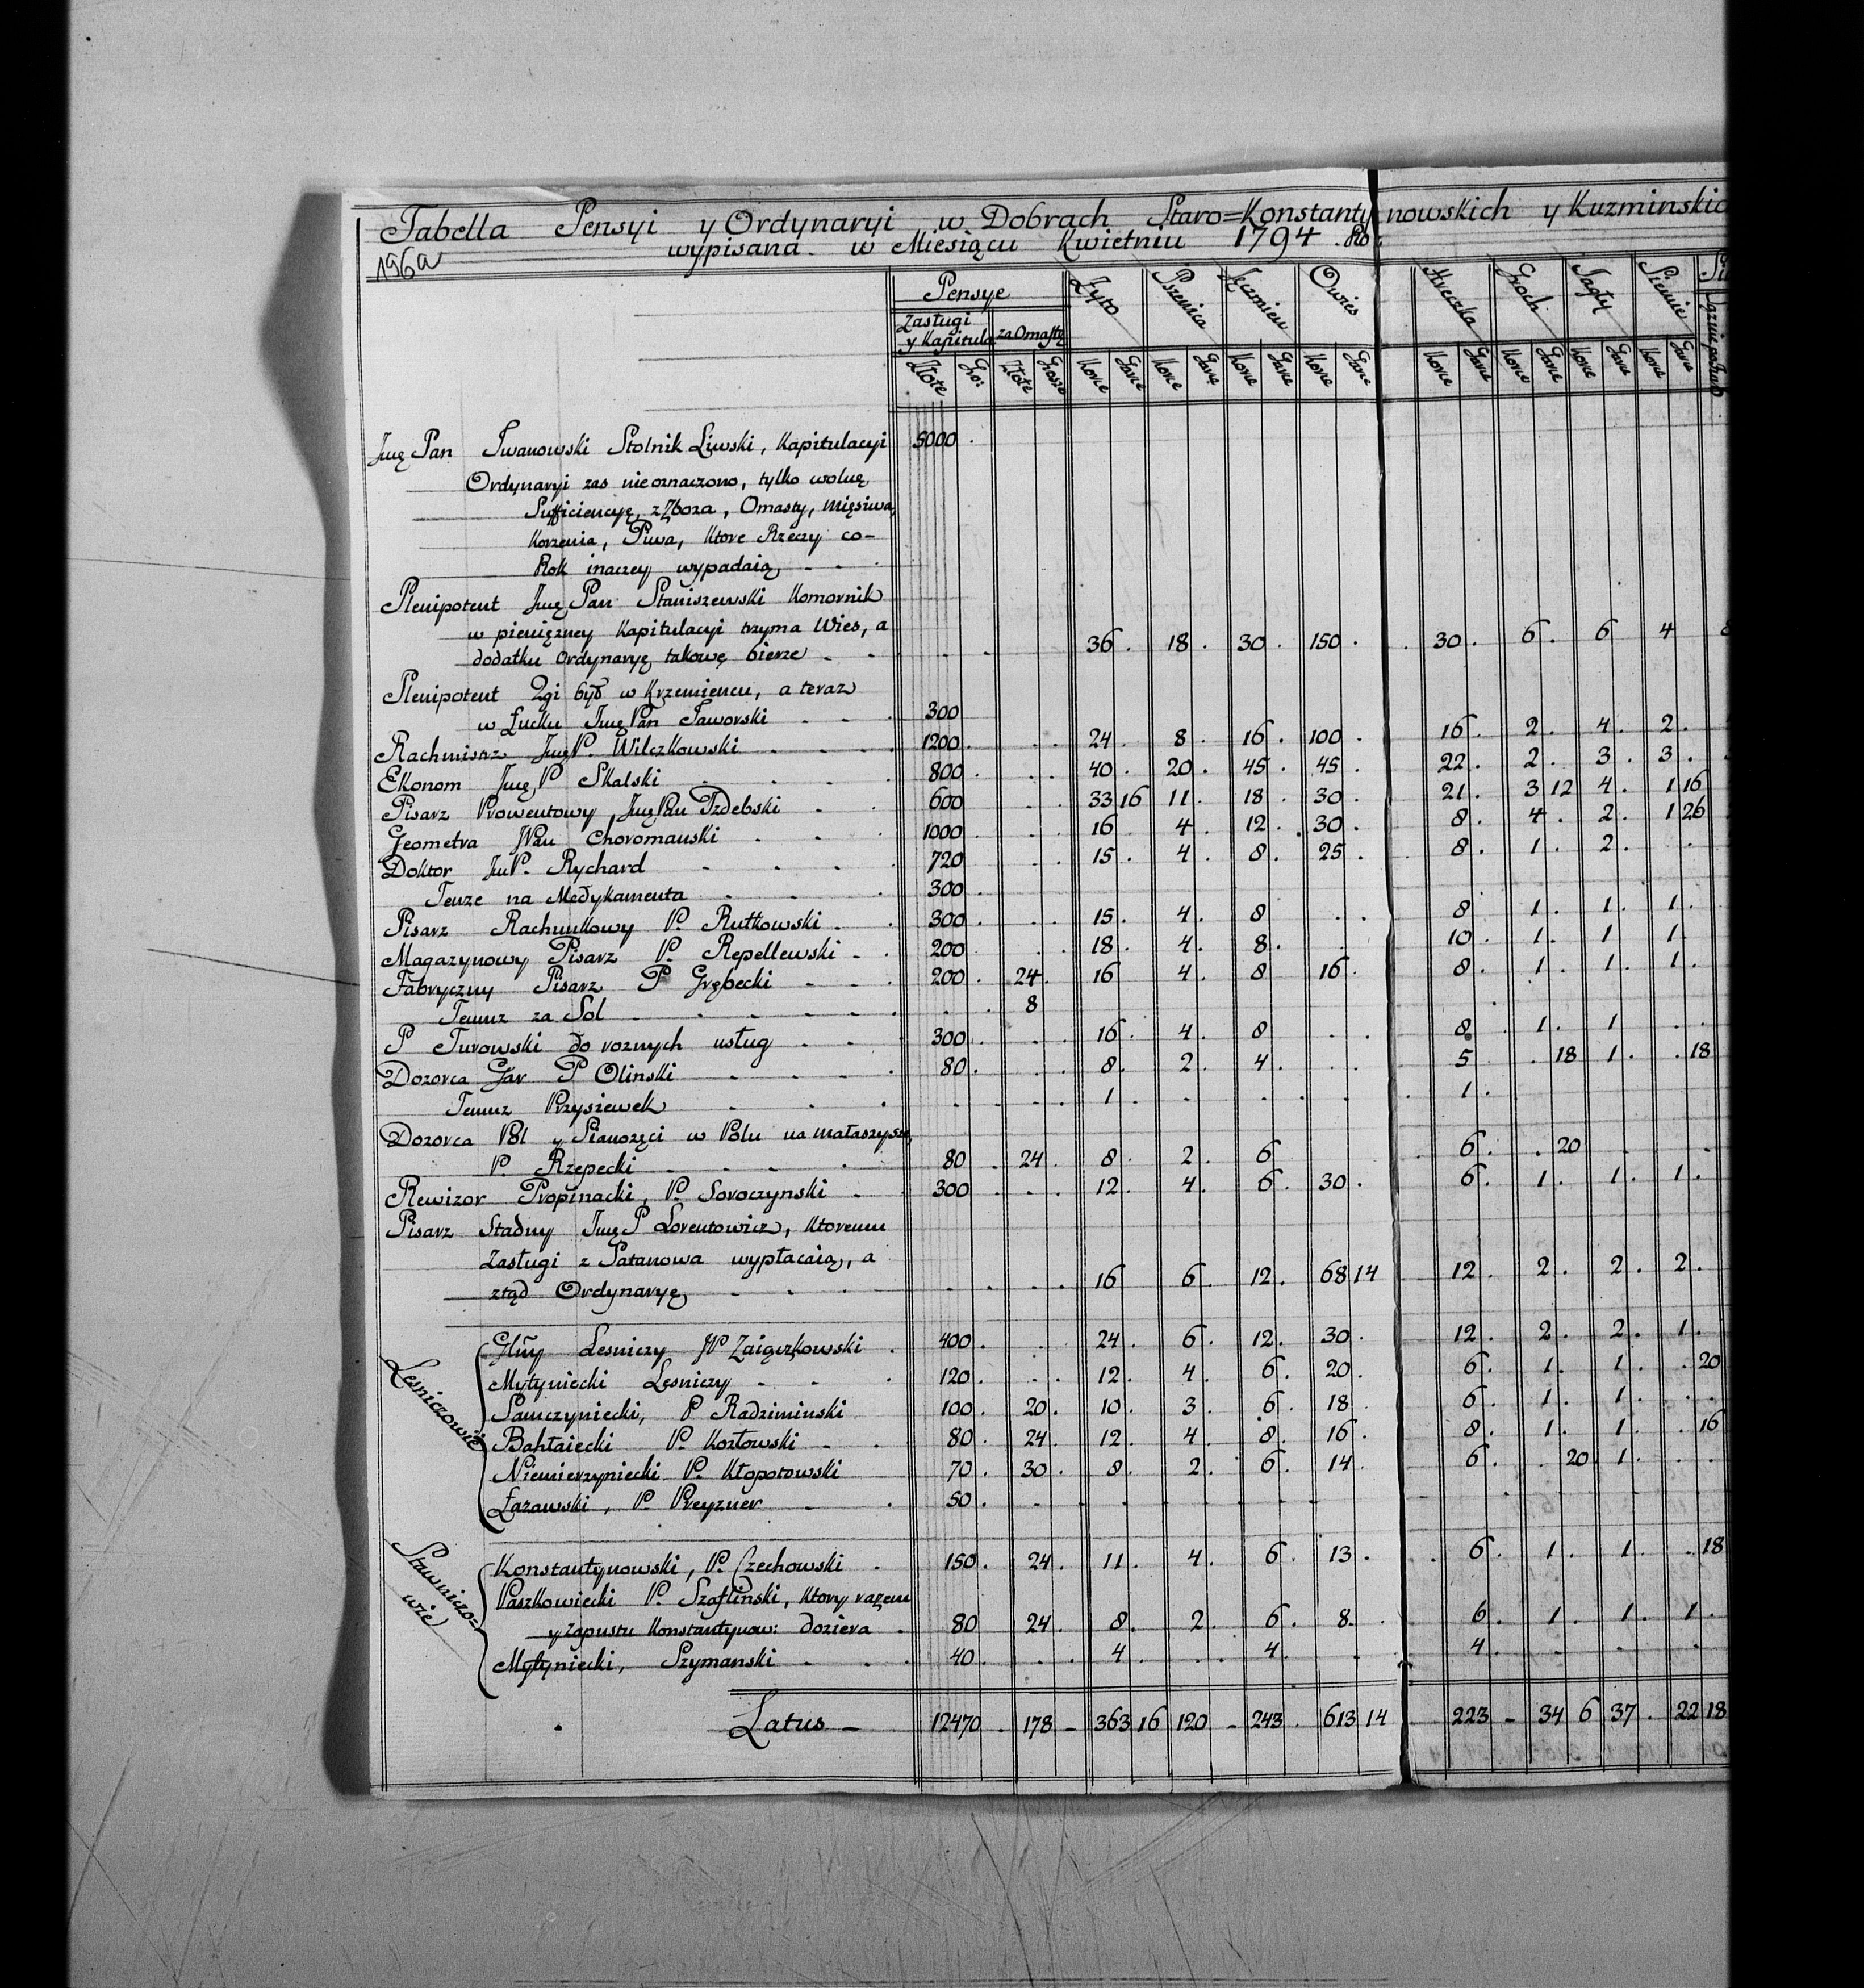 Tabella Pensyi y Ordynaryi w Dobrach Staro=Konstantynowskich y Kuzminskic
wypisana w Miesiącu Kwietniu 1794 Ro:
196a
Pensye Żyto Pszenica Jęczmień Owies Hreczka Groch Jagły Siemie
Zasługi y Kapitula za Omastę
Złote Gro: Złote Grosze Korce Garce Korce Garce Korce Garce Korce Garce Korce Garce Korce Garce Korce Garce Korce Garce
Jmę Pan Iwanowski Stolnik Liwski, Kapitulacyi 5000
Ordynaryi zas nieoznaczono, tylko wolną
Sufficiencyę z Zboza, Omasty, Mięsiwa,
Korzenia, Piwa, Ktore Rzeczy co-
Rok inaczey wypadaią
Plenipotent Jmę Pan Staniszewski Komornik
w pienięzney Kapitulacyi trzyma Wies, a
dodatku Ordynaryę takowę bierze 36 18 30 150 30 6 6 4
Plenipotent 2gi był w Krzemiencu, a teraz
w Łucku Jmę Pan Jaworski 300
Rachmistrz JmęP. Wilczkowski 1200 24 8 16 100 16 2 4 2
Ekonom Jmę P Skalski 800 40 20 45 45 22 2 3 3
Pisarz Prowentowy Jmę Pan Izdebski 600 33 16 11 18 30 21 3 12 4 1 16
Geometra JPan Choromanski 1000 16 4 12 30 8 4 2 1 26
Doktor JmP. Rychard 720 15 4 8 25 8 1 2
Tenze na Medykamenta 300
Pisarz Rachunkowy P. Rutkowski 300 15 4 8 8 1 1 1
Magazynowy Pisarz P. Repellewski 200 18 4 8 10 1 1 1
Fabryczny Pisarz P Grębecki 200 24 16 4 8 16 8 1 1 1
Temuz za Sol 8
P Turowski do roznych usług 300 16 4 8 8 1 1
Dozorca Gar P Olinski 80 8 2 4 5 18 1 18
Temuz Przysiewek 1 1
Dozorca Pol y Sianozęci w Polu na Mataszysze,
P Rzepecki 80 24 8 2 6 6 20
Rewizor Propinacki, P. Soroczynski 300 12 4 6 30 6 1 1 1
Pisarz Stadny Jmę P Lorentowicz, Ktoremu
Zasługi z Satanowa wypłacaią, a
ztąd Ordynaryę 16 6 12 68 14 12 2 2 2
Lesniczowie
Głny Lesniczy JP Zaiączkowski 400 24 6 12 30 12 2 2 1
Mytyniecki Lesniczy 120 12 4 6 20 6 1 1 20
Samczyniecki, P Radziminski 100 20 10 3 6 18 6 1 1
Bahłaiecki P. Kozłowski 80 24 12 4 8 16 8 1 1 16
Niemierzyniecki P. Kłopotowski 70 30 8 2 6 14 6 20 1
Łazawski, P. Preyzner 50
Stawniczo=
wie
Konstantynowski, P. Czechowski 150 24 11 4 6 13 6 1 1 18
Paszkowiecki P. Szaflinski, Ktory razem
y Zapustu Konstantynow: doziera 80 24 8 2 6 8 6 1 1 1
Mytyniecki, Szymanski 40 4 4 4
Latus 12470 178 363 16 120 243 613 14 223 34 6 37 22 18